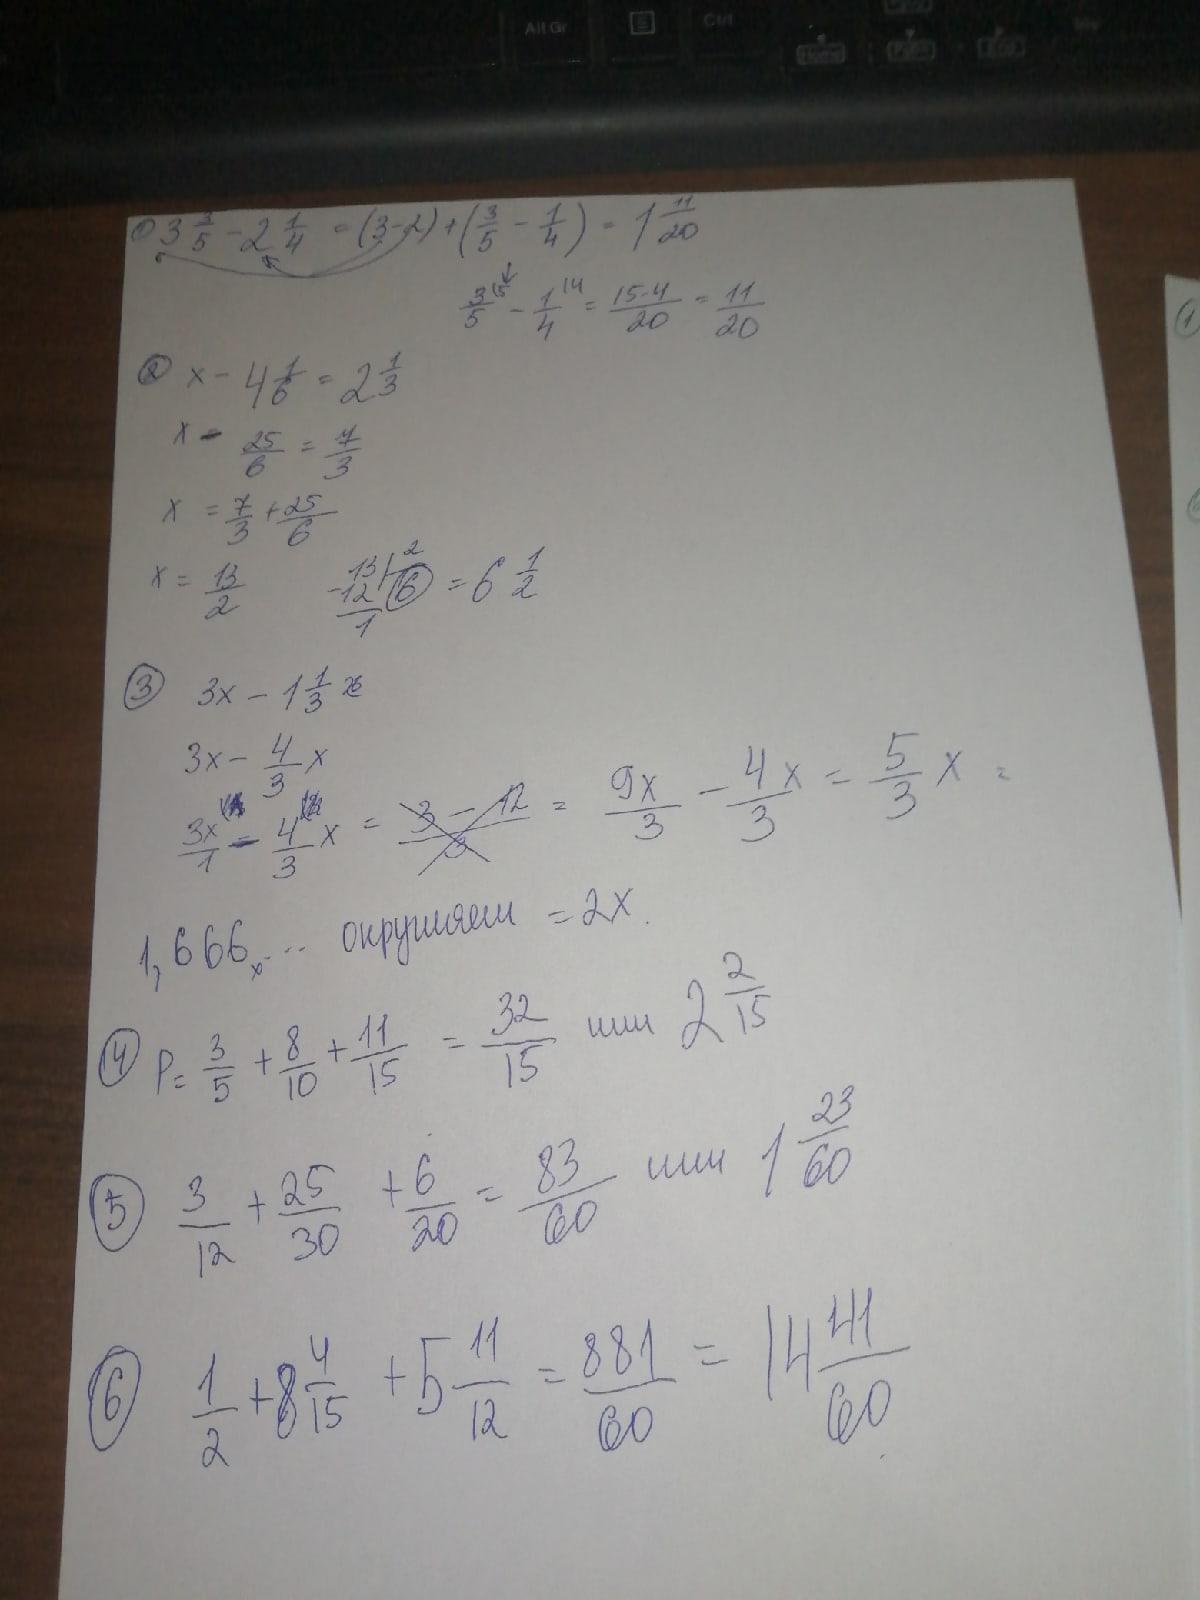 Alt Gr Ctrl
Home PgDn End
① 3 3/5 - 2 1/4 = (3-2) + (3/5 - 1/4) = 1 11/20
3/5 - 1/4 = 15-4/20 = 11/20
② x - 4 1/6 = 2 1/3
x - 25/6 = 7/3
x = 7/3 + 25/6
x = 13/2 13 2 -12 6 1 = 6 1/2
③ 3x - 1 1/3 x
3x - 4/3 x
3x/1 - 4/3 x = 3-12/3 = 9x/3 - 4x/3 = 5/3 x =
1,666x... округляем = 2x.
④ P = 3/5 + 8/10 + 11/15 = 32/15 или 2 2/15
⑤ 3/12 + 25/30 + 6/20 = 83/60 или 1 23/60
⑥ 1/2 + 8 4/15 + 5 11/12 = 881/60 = 14 41/60